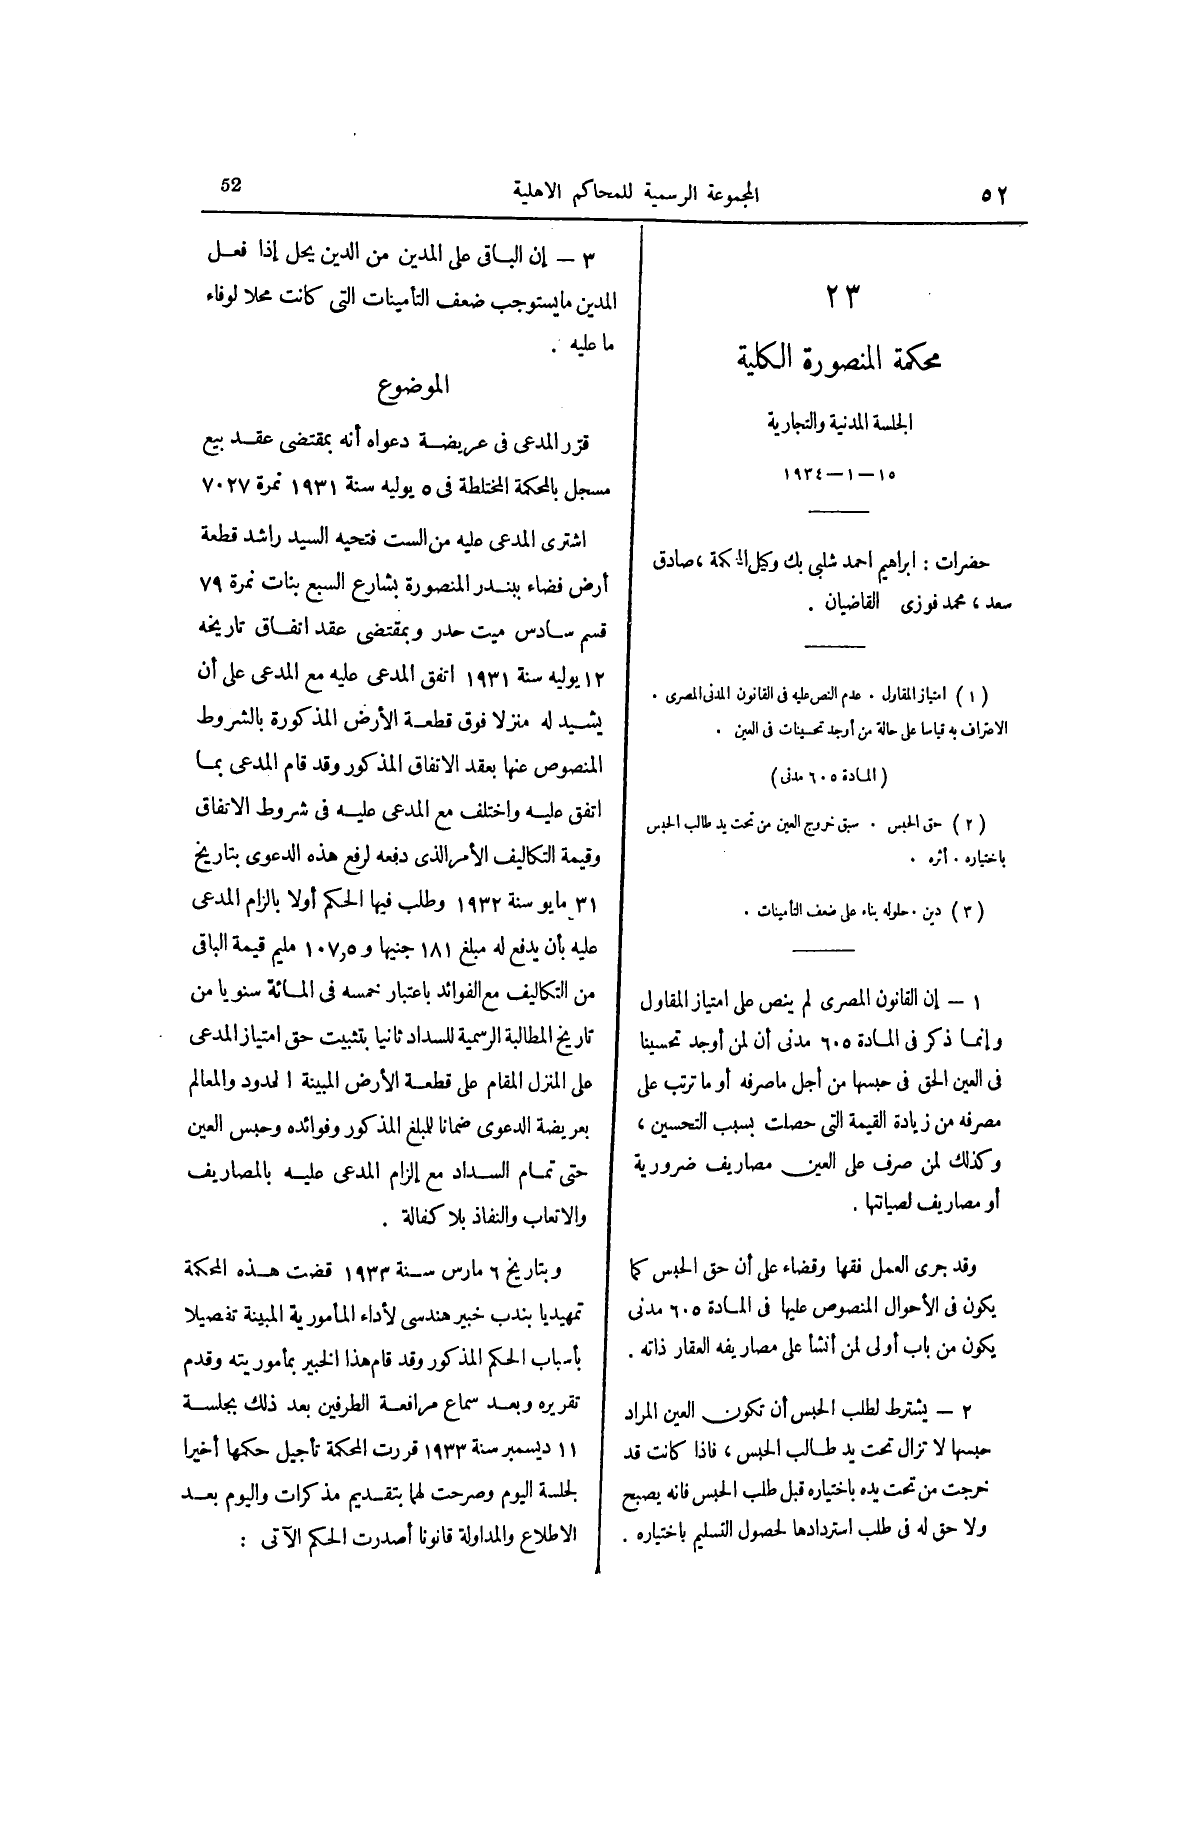 ٥٢
المجموعة الرسمية للمحاكم الاهلية
52
٢٣
محكمة المنصورة الكلية
الجلسة المدنية والتجارية
١٥ — ١ — ١٩٣٤
حضرات : ابراهيم احمد شلبى بك وكيل المحكمة ، صادق
سعد ، محمد فوزى القاضيان .
(١) امتياز المقاول . عدم النص عليه فى القانون المدنى المصرى .
الاعتراف به قياسا على حالة من أوجد تحسينات فى العين .
(المادة ٦٠٥ مدنى)
(٢) حق الحبس . سبق خروج العين من تحت يد طالب الحبس
باختياره . أثره .
(٣) دين . حلوله بناء على ضعف التأمينات .
١ — إن القانون المصرى لم ينص على امتياز المقاول
وإنما ذكر فى المادة ٦٠٥ مدنى أن لمن أوجد تحسينا
فى العين الحق فى حبسها من أجل ماصرفه أو ما ترتب على
مصرفه من زيادة القيمة التى حصلت بسبب التحسين ،
وكذلك لمن صرف على العين مصاريف ضرورية
أو مصاريف لصيانتها .
وقد جرى العمل فقها وقضاء على أن حق الحبس كما
يكون فى الأحوال المنصوص عليها فى المادة ٦٠٥ مدنى
يكون من باب أولى لمن أنشأ على مصاريفه العقار ذاته .
٢ — يشترط لطلب الحبس أن تكون العين المراد
حبسها لا تزال تحت يد طالب الحبس ، فاذا كانت قد
خرجت من تحت يده باختياره قبل طلب الحبس فانه يصبح
ولا حق له فى طلب استردادها لحصول التسليم باختياره .
٣ — إن الباقى على المدين من الدين يحل إذا فعل
المدين مايستوجب ضعف التأمينات التى كانت محلا لوفاء
ما عليه .
الموضوع
قرّر المدعى فى عريضة دعواه أنه بمقتضى عقد بيع
مسجل بالمحكمة المختلطة فى ٥ يوليه سنة ١٩٣١ نمرة ٧٠٢٧
اشترى المدعى عليه من الست فتحيه السيد راشد قطعة
أرض فضاء ببندر المنصورة بشارع السبع بنات نمرة ٧٩
قسم سادس ميت حدر وبمقتضى عقد اتفاق تاريخه
١٢ يوليه سنة ١٩٣١ اتفق المدعى عليه مع المدعى على أن
يشيد له منزلا فوق قطعة الأرض المذكورة بالشروط
المنصوص عنها بعقد الاتفاق المذكور وقد قام المدعى بما
اتفق عليه واختلف مع المدعى عليه فى شروط الاتفاق
وقيمة التكاليف الأمر الذى دفعه لرفع هذه الدعوى بتاريخ
٣١ مايو سنة ١٩٣٢ وطلب فيها الحكم أولا بالزام المدعى
عليه بأن يدفع له مبلغ ١٨١ جنيها و ١٠٧٫٥ مليم قيمة الباقى
من التكاليف مع الفوائد باعتبار خمسه فى المائة سنويا من
تاريخ المطالبة الرسمية للسداد ثانيا بتثبيت حق امتياز المدعى
على المنزل المقام على قطعة الأرض المبينة الحدود والمعالم
بعريضة الدعوى ضمانا للمبلغ المذكور وفوائده وحبس العين
حتى تمام السداد مع إلزام المدعى عليه بالمصاريف
والاتعاب والنفاذ بلا كفالة .
وبتاريخ ٦ مارس سنة ١٩٣٣ قضت هذه المحكمة
تمهيديا بندب خبير هندسى لأداء المأمورية المبينة تفصيلا
بأسباب الحكم المذكور وقد قام هذا الخبير بمأموريته وقدم
تقريره وبعد سماع مرافعة الطرفين بعد ذلك بجلسة
١١ ديسمبر سنة ١٩٣٣ قررت المحكمة تأجيل حكمها أخيرا
لجلسة اليوم وصرحت لهما بتقديم مذكرات واليوم بعد
الاطلاع والمداولة قانونا أصدرت الحكم الآتى :